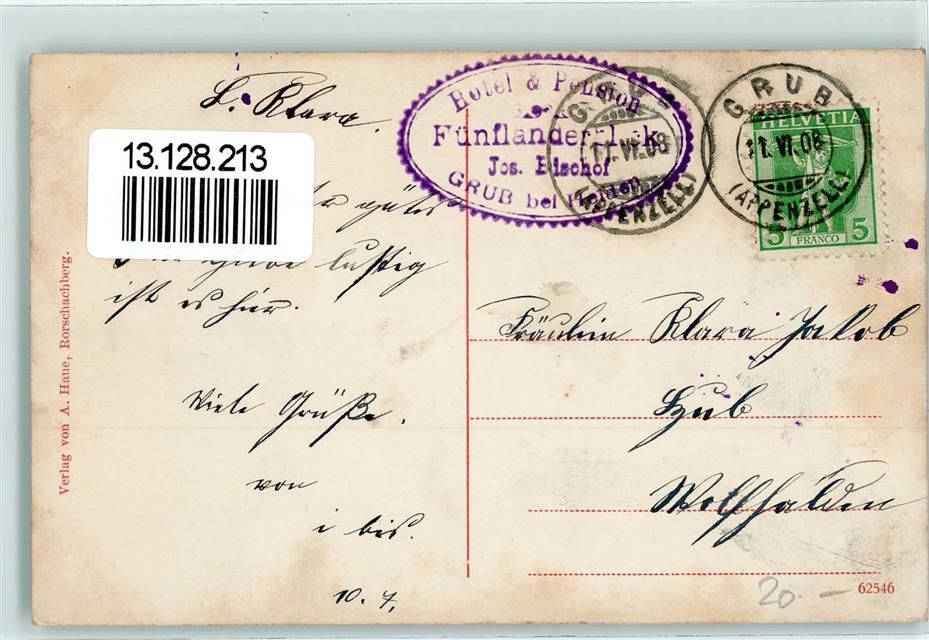 L. Klara.
13.128.213
lustig
ist es hier.
Viele Grüße.
von
i bis.
10. 7.
Verlag von A. Haue, Rorschachberg.
Hotel & Pension
Fünfländerblick
Jos. Bischof
GRUB bei Heiden
GRUB
11.VI.08
(APPENZELL)
GRUB
11.VI.08
(APPENZELL)
HELVETIA
5 FRANCO 5
Fräulein Klara Jakob
Hub
Wolfhalden
20.—
62546